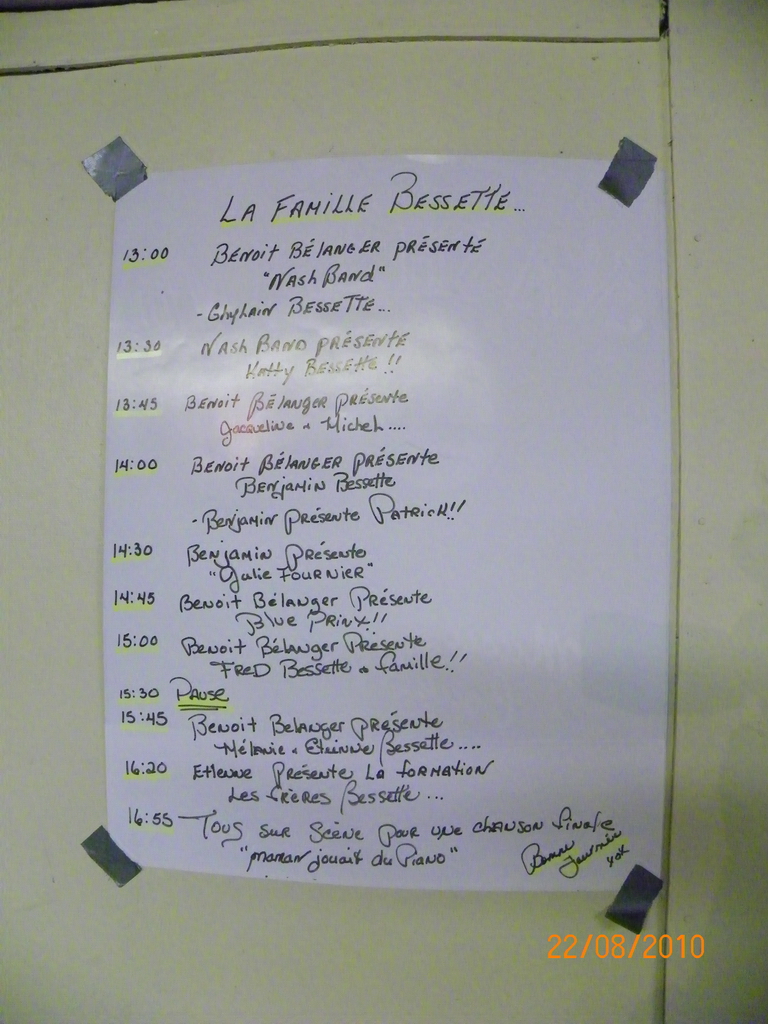 LA FAMILLE BESSETTE...
13:00 BENOIT BÉLANGER PRÉSENTE
"NASH BAND"
- Ghylain BESSETTE...
13:30 NASH BAND PRÉSENTE
Katty BESSETTE !!
13:45 BENOIT BÉLANGER PRÉSENTE
Jacqueline & Michel....
14:00 BENOIT BÉLANGER PRÉSENTE
BENJAMIN Bessette
- BENJAMIN PRÉSENTE PATRICK!!
14:30 BENJAMIN PRÉSENTE
"Julie FOURNIER"
14:45 Benoit Bélanger PRÉSENTE
Blue PRINX!!
15:00 Benoit Bélanger PRÉSENTE
FRED Bessette & famille!!
15:30 PAUSE
15:45 Benoit Belanger présente
Mélanie & Etienne Bessette....
16:20 Etienne Présente La formation
Les frères Bessette...
16:55 Tous sur scène pour une chanson finale
"maman jouait du Piano"
Bonne
Journée
xox
22/08/2010